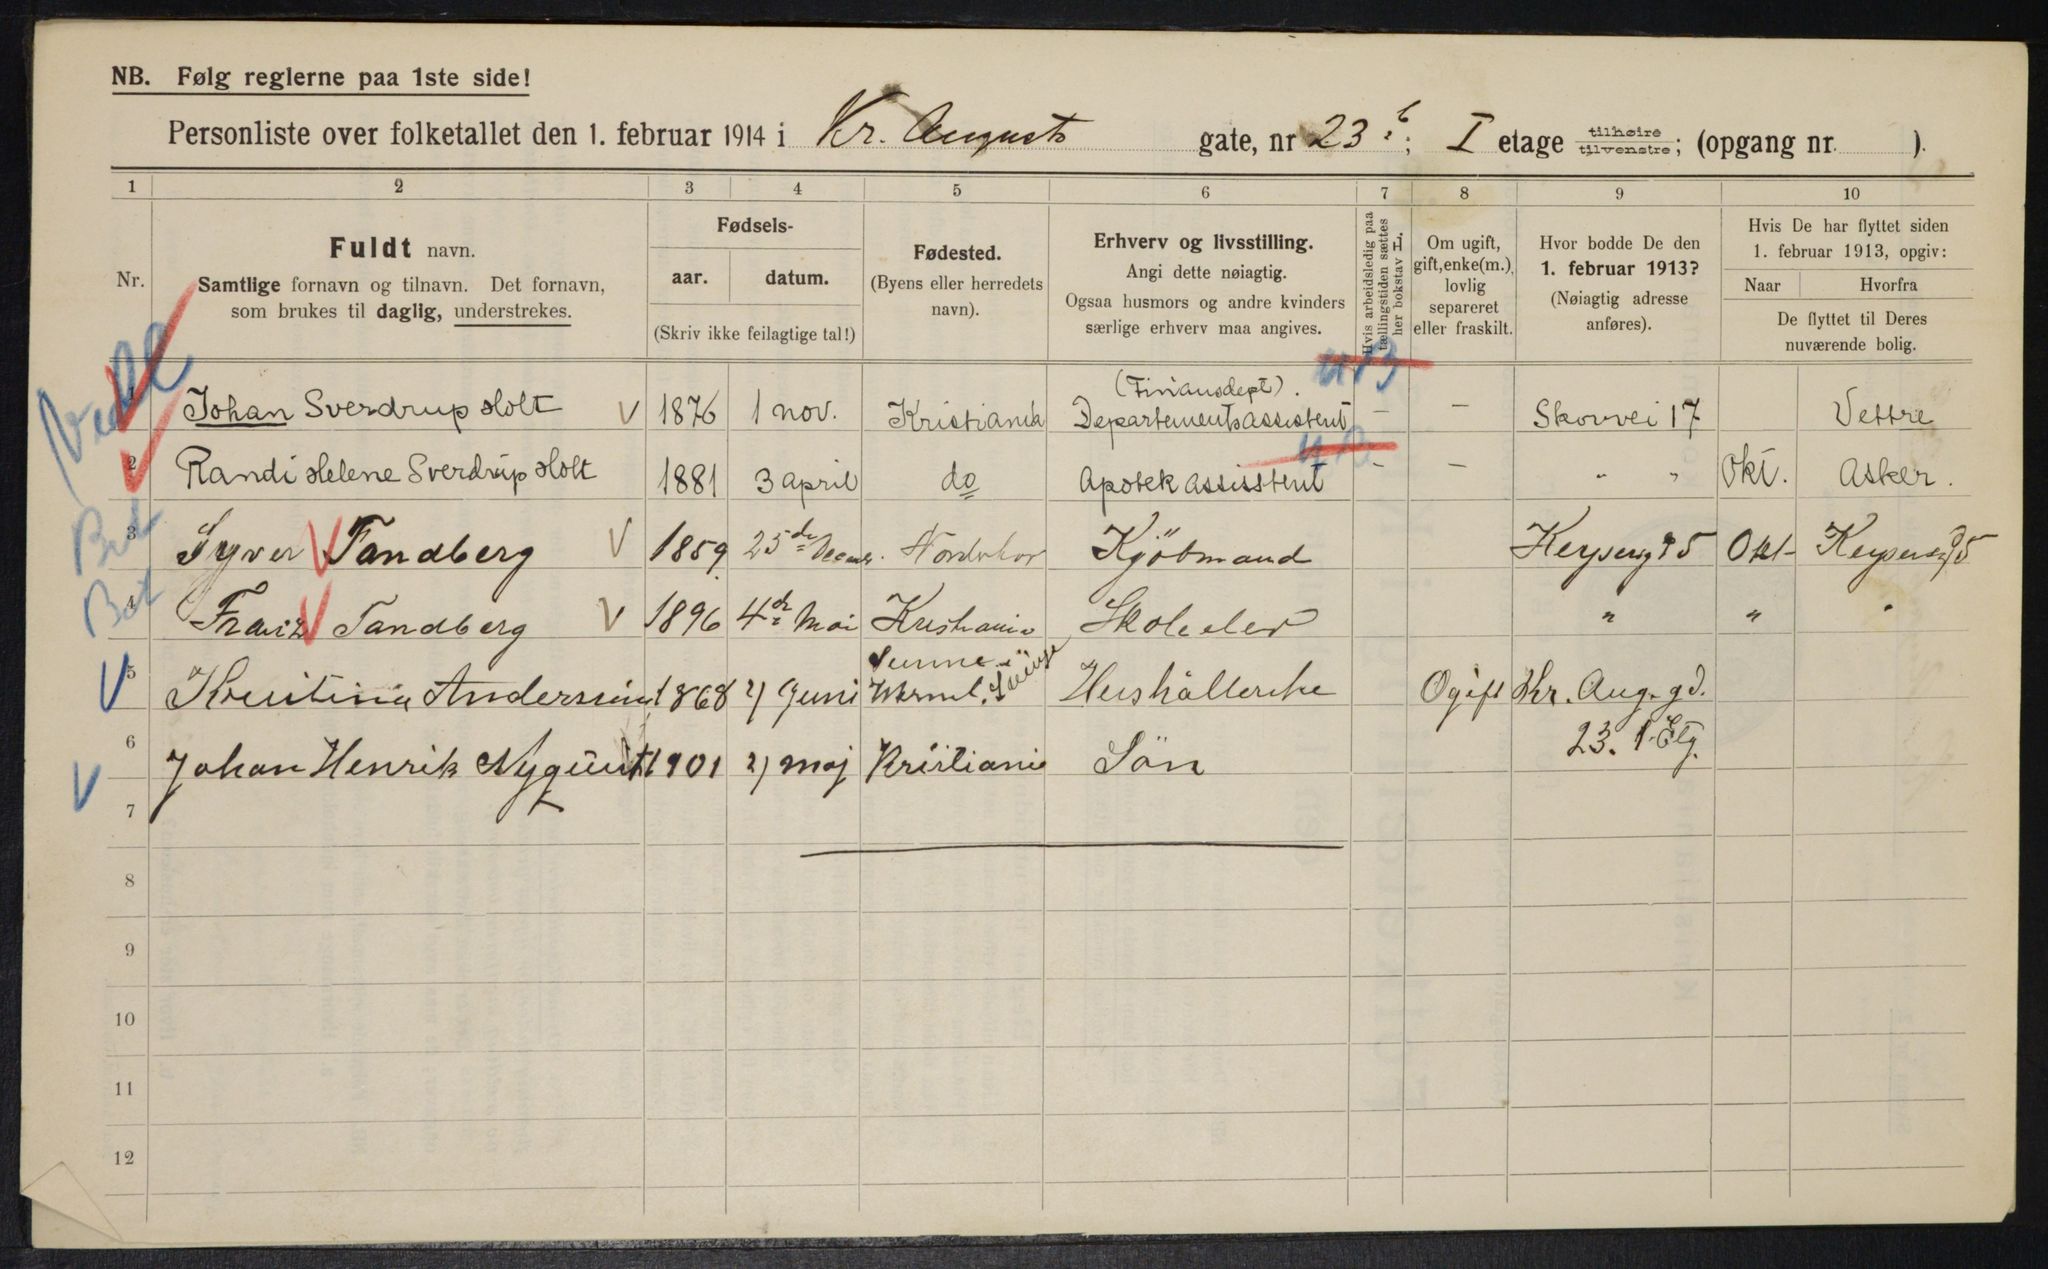 NB. Følg reglerne paa 1ste side!
Personliste over folketallet den 1. februar 1914 i Kr. Augusts gate, nr 23 b; I etage tilhøire tilvenstre; (opgang nr. ).
1 2 3 4 5 6 7 8 9 10
Nr.
Fuldt navn.
Samtlige fornavn og tilnavn. Det fornavn,
som brukes til daglig, understrekes.
Fødsels-
aar. datum.
(Skriv ikke feilagtige tal!)
Fødested.
(Byens eller herredets
navn).
Erhverv og livsstilling.
Angi dette nøiagtig.
Ogsaa husmors og andre kvinders
særlige erhverv maa angives.
Hvis arbeidsledig paa
tællingstiden sættes
her bokstav L.
Om ugift,
gift, enke(m.),
lovlig
separeret
eller fraskilt.
Hvor bodde De den
1. februar 1913?
(Nøiagtig adresse
anføres).
Hvis De har flyttet siden
1. februar 1913, opgiv:
Naar Hvorfra
De flyttet til Deres
nuværende bolig.
(Finansdept).
1 Johan Sverdrup Holt V 1876 1 nov. Kristiania Departementsassistent – – Skovvei 17 Vettre
2 Randi Helene Sverdrup Holt 1881 3 april do Apotekassisstent – – " " Okt. Asker.
3 Syver Tandberg V 1859 25de Nordrehov Kjøbmand Keysersg 5 Okt Keysersg 5
4 Franz Tandberg V 1896 4de Mai Kristiania Skoleelev " " "
Sunne
5 Kristina Anderson 1868 2/ Juni Verml. Hushållerske Ogift Kr. Aug. gd.
23. 1. Etg.
6 Johan Henrik Nyquist 1901 2/ maj Kristiania Sön
7
8
9
10
11
12